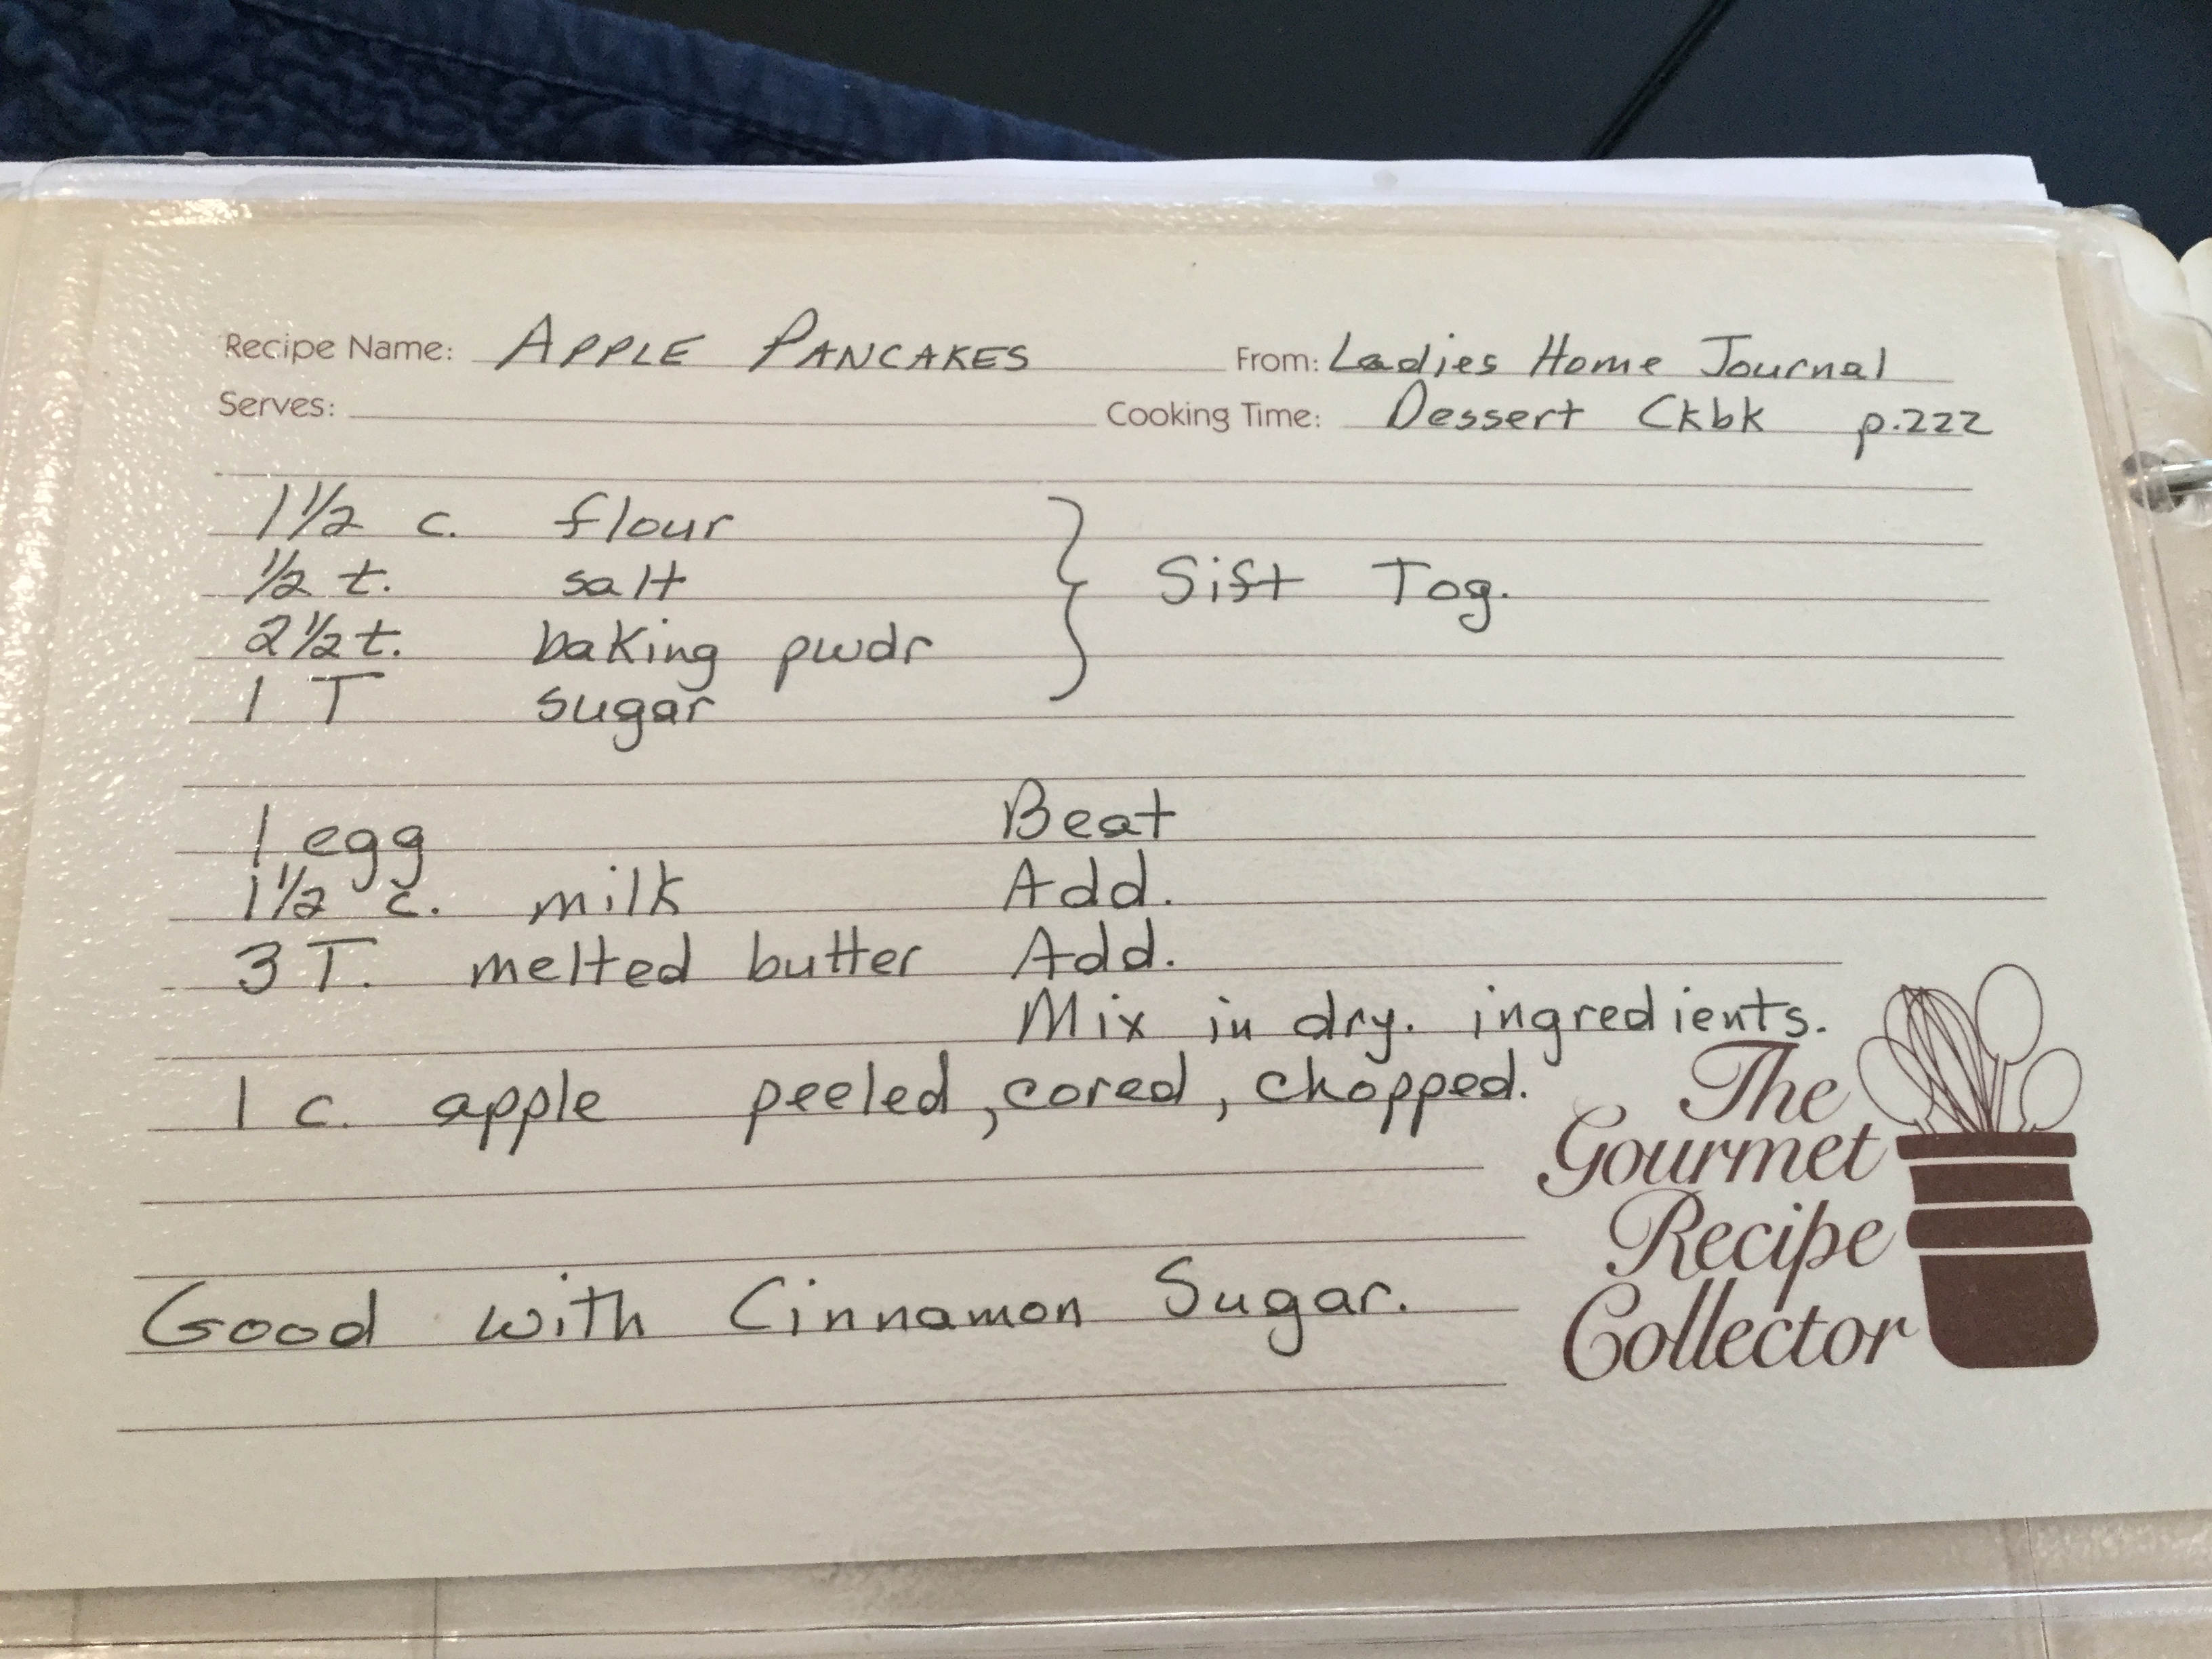 Recipe Name: APPLE PANCAKES From: Ladies Home Journal
Serves: Cooking Time: Dessert Ckbk p.222
1 1/2 c. flour
1/2 t. salt
2 1/2 t. baking pwdr
1 T sugar
} Sift Tog.
1 egg Beat
1 1/2 c. milk Add.
3 T. melted butter Add.
Mix in dry. ingredients.
1 c. apple peeled, cored, chopped.
Good with Cinnamon Sugar.
The
Gourmet
Recipe
Collector